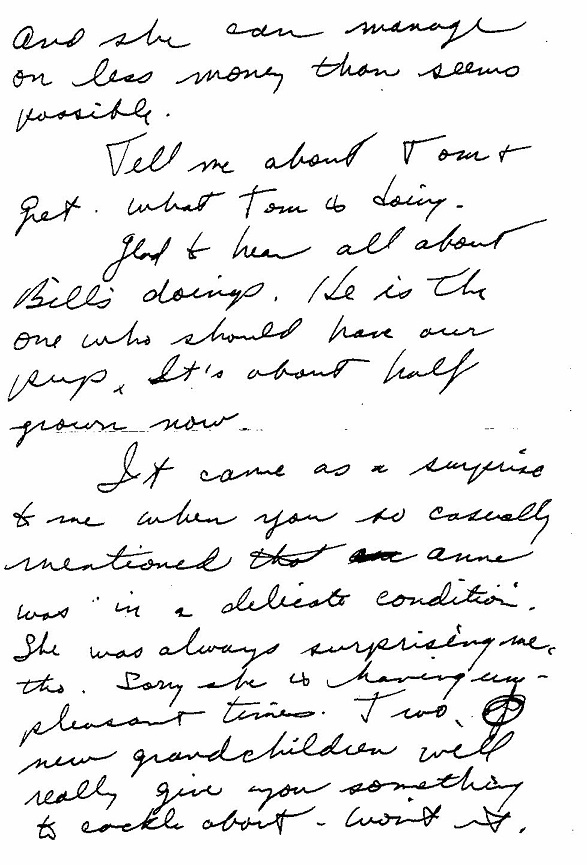 And she can manage
on less money than seems
possible.
Tell me about Tom +
Get. what Tom is doing.
Glad to hear all about
Bill's doings. He is the
one who should have our
pup. It's about half
grown now.
It came as a surprise
to me when you so casually
mentioned that Anne
was "in a delicate condition".
She was always surprising me,
tho. Sorry she is having un-
pleasant times. Two
new grandchildren will
really give you something
to cackle about - won't it.